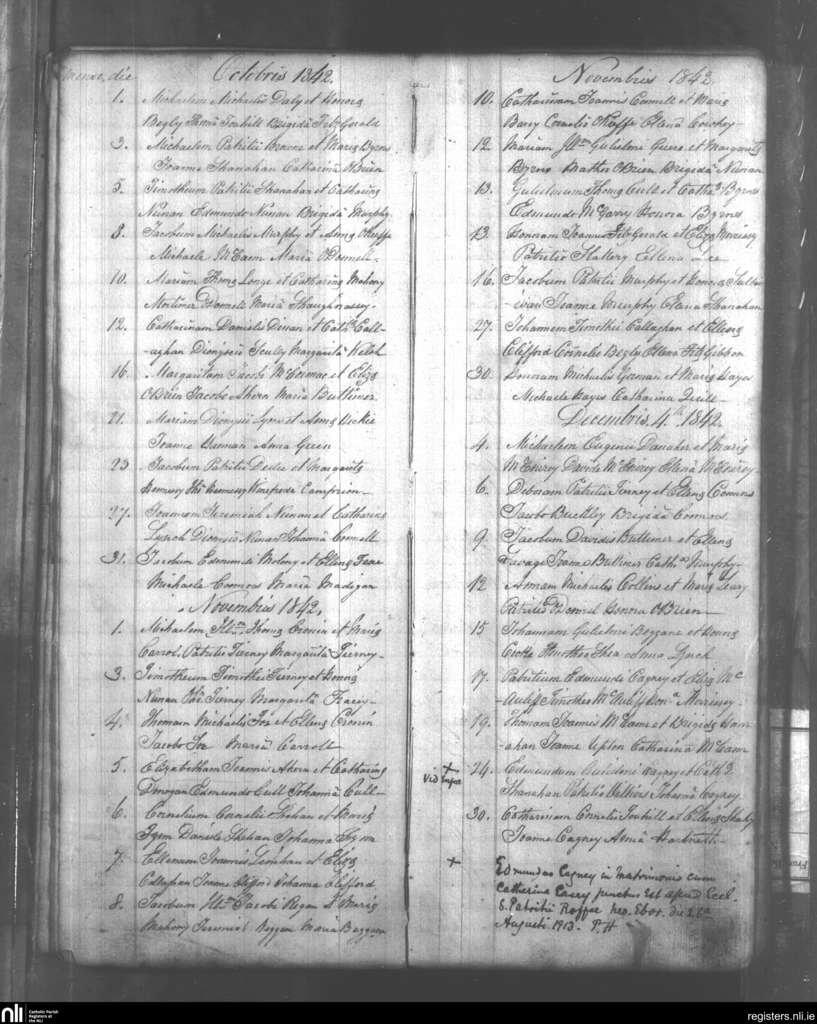 mense, die Octobris 1842.
1. Michaelem Michaelis Daly et Honora
Begly Thoma Touhill Brigida Fitz Gerald
3. Michaelem Patritii Browne et Maria Byrns
Joanne Shanahan Catharina O'Brien
5. Timotheum Patritii Shanahan et Catharina
Nunan Edmundo Nunan Brigida Murphy
8. Jacobum Michaelis Murphy et Anna O'Keeffe
Michaele McEam Maria O'Donnell
10. Mariam Thoma Longe et Catharina Mahony
Mortimer O'Connell Maria Shaughnassey
12. Catharinam Danielis Dinan et Cath Call-
aghan Dionysio Scully Margarita Welsh
16. Margaritam Jacobi McCormac et Eliza
O'Brien Jacobo Ahern Maria Buttimer
21. Mariam Dionysii Lyne et Anna Hickie
Joanne Anna Green
23 Jacobum Patritii Dedee et Margarita
Hennessy Ths Hennessy Winefreda
27. Joannem Jeremiah Nunan et Catharina
Lynch Dionysio Nunan Johanna Connell
31. Jacobum Edmundi Molony et Ellena
Michaele Connors Maria Madigan
Novembris 1842.
1. Michaelem Illm Thoma Cronin et Maria
Carrol. Patritio Tierny Margarita Tierny
3. Timotheum Timothei Tierny et Honora
Nunan Ths Tierny Margarita
4. Thomam Michaelis Fox et Ellena Cronin
Jacobo Fox Maria Carroll
5. Elizabetham Joannis Ahern et Catharina
Edmundo Cull Johanna Cull
6. Cornelium Cornelii Shehan et Maria
Daniele Shehan Johanna
7. Ellenam Joannis Linehan et Eliza
Callaghan Joanne Clifford Johanna Clifford
8. Jacobum Illm Jacobi Regan & Maria
Mahony Jeremia Maria
Novembris 1842
10. Catharinam Joannis Connell et Maria
Barry Cornelio O'Keeffe Elena
12. Mariam Illm Gulielmi Guero et Margarita
Byrns Mathes O'Brien Brigida Nunan
13. Gulielmum Thoma Cull et Catha Byrnes
Edmundo McGarry Honora Byrnes
13. Honoram Joannis Fitz Gerald et Eliza Morrissy
Patritio Slattery Ellena Lee
16. Jacobum Patritii Murphy et Honora Sull-
-ivan Joanne Murphy Elena Shanahan
27. Johannem Timothei Callaghan et Ellena
Clifford Cornelio Begly Elena Fitz Gibbon
30. Michaelis Gorman et Maria Hayes
Michaele Hayes Catharina Quill
Decembris 4th 1842.
4. Michaelem Eugenii Danaher et Maria
McEniry Davide McEniry Elena McEniry
6. Deboram Patritii Tierney et Ellena Connors
Jacobo Buckley Brigida Connors.
9 Jacobum Davidis Buttimer et Ellena
Savage Joanne Buttimer Catha Murphy
12 Annam Michaelis Collins et Maria Leary
Patritio O'Donnel Honora O'Brien
15 Johannam Gulielmi Boggane et Honora
Timotheo Shea Anna Lynch
17. Patritium Edmundi Cagney et Eliza Mc
-Auliff Timotheo McAuliff Hona Morrissey
19. Thomam Joannis McEam et Brigida Han-
-rahan Joanne Upton Catharina McEam
+
Vid infra
24. Edmundum Gulielmi Cagney et Cath
Shanahan Patritio Collins Johanna Cagney
30. Catharinam Cornelii Touhill et Ellena Sheehy
Joanne Cagney Anna Hartnett
+ Edmundus Cagney in matrimonio cum
Catherine Casey junctus est apud Eccl.
S. Patritii Neo. Ebor. die 26a
Augusti 1913. P. H
nli Catholic Parish
Registers at
the NLI
registers.nli.ie